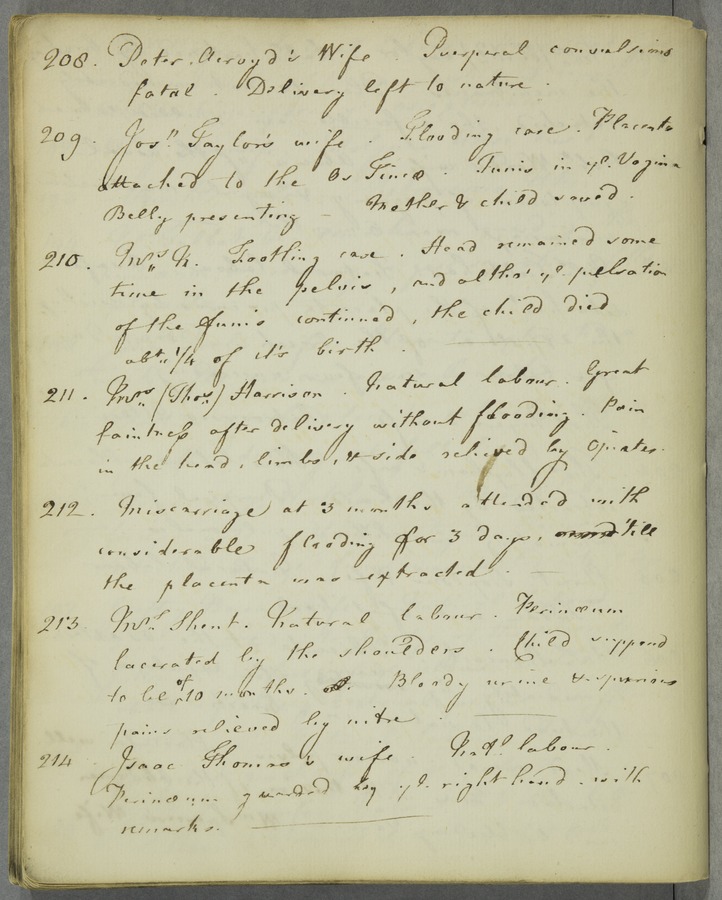 208. Peter Acroyd's Wife. Puerperal convulsions
fatal. Delivery left to nature.
209. Josh. Taylor's wife. Flooding case. Placenta
attached to the Os Tincæ. Funis in ye. Vagina
Belly presenting — Mother & child saved.
210. Mrs. K. Footling case. Head remained some
time in the pelvis, and altho' ye. pulsation
of the funis continued, the child died
abt. 1/4 of it's birth.
211. Mrs. (Thos.) Harrison. Natural labour. Great
faintness after delivery without flooding. Pain
in the head, limbs, & side relieved by Opiates.
212. Miscarriage at 3 months attended with
considerable flooding for 3 days, 'till
the placenta was extracted. —
213 Mrs. Shent. Natural labour. Perinæum
lacerated by the shoulders. Child suppos'd
to be of 10 months. Bloody urine &
pains relieved by nitre. —
214 Isaac Thomas's wife. Natl. labour.
Perinæum guarded by ye. right hand. with
remarks. —